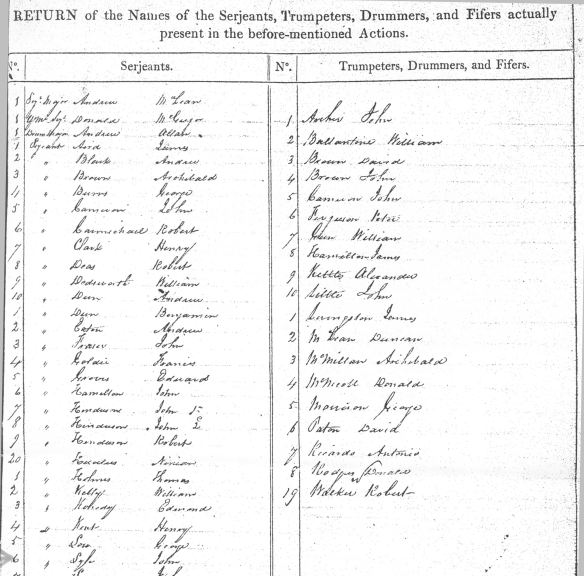 RETURN of the Names of the Serjeants, Trumpeters, Drummers, and Fifers actually
present in the before-mentioned Actions.
No. Serjeants.
1 Sgt. Major Andrew McLean
1 Qr. Mr. Sgt. Donald McGregor
1 Drum Major Andrew Allan
1 Serjeant James
2 " Black Andrew
3 " Brown Archibald
4 " Burns George
5 " Cameron John
6 " Carmichael Robert
7 " Clark Henry
8 " Deas Robert
9 " Dodsworth William
10 " Dun Andrew
1 " Dun Benjamin
2 " Eaton Andrew
3 " Fraser John
4 " Goldie Francis
5 " Groves Edward
6 " Hamilton John
7 " Henderson John 1st
8 " Henderson John 2
9 " Henderson Robert
20 " Ninian
1 " Holmes Thomas
2 " Kelly William
3 " Kennedy Edmund
4 " Kent Henry
5 " George
6 " Lyle John
7
No. Trumpeters, Drummers, and Fifers.
1 Archer John
2 Ballantine William
3 Brown David
4 Brown John
5 Cameron John
6 Ferguson Peter
7 Glen William
8 Hamilton James
9 Kettle Alexander
10 Little John
1 Livingston James
2 McLean Duncan
3 McMillan Archibald
4 McNicoll Donald
5 Morrison George
6 Paton David
7 Ricardo Antonio
8 Rodger Donald
19 Walker Robert